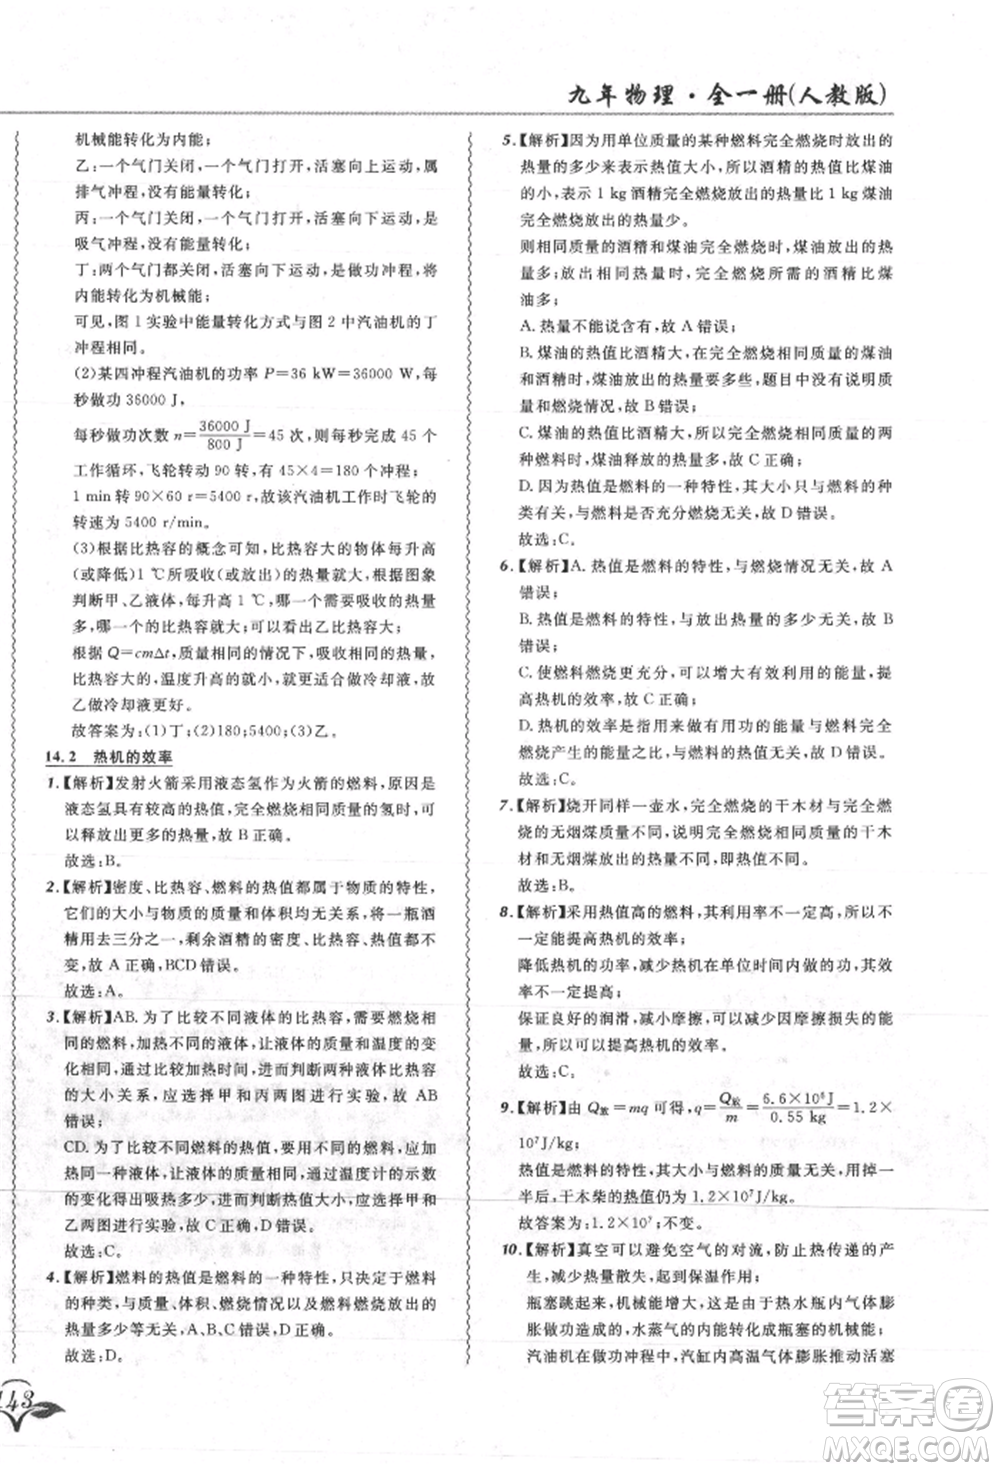 九年物理·全一册(人教版)
机械能转化为内能;
乙:一个气门关闭,一个气门打开,活塞向上运动,属
排气冲程,没有能量转化;
丙:一个气门关闭,一个气门打开,活塞向下运动,是
吸气冲程,没有能量转化;
丁:两个气门都关闭,活塞向下运动,是做功冲程,将
内能转化为机械能;
可见,图1实验中能量转化方式与图2中汽油机的丁
冲程相同。
(2)某四冲程汽油机的功率 P=36 kW=36000 W,每
秒做功 36000 J,
每秒做功次数 n=36000 J/800 J=45 次,则每秒完成 45 个
工作循环,飞轮转动 90 转,有 45×4=180 个冲程;
1 min 转 90×60 r=5400 r;故该汽油机工作时飞轮的
转速为 5400 r/min。
(3)根据比热容的概念可知,比热容大的物体每升高
(或降低)1 ℃所吸收(或放出)的热量就大;根据图象
判断甲、乙液体,每升高 1 ℃,哪一个需要吸收的热量
多,哪一个的比热容就大;可以看出乙比热容大;
根据 Q=cmΔt,质量相同的情况下,吸收相同的热量,
比热容大的,温度升高的就小,更适合做冷却液,故
乙做冷却液更好。
故答案为:(1)丁;(2)180;5400;(3)乙。
14.2 热机的效率
1.【解析】发射火箭采用液态氢作为火箭的燃料,原因是
液态氢具有较高的热值,完全燃烧相同质量的氢时,
可以释放出更多的热量,故 B 正确。
故选:B。
2.【解析】密度、比热容、燃料的热值都属于物质的特性,
它们的大小与物质的质量和体积均无关,将一瓶酒
精用去三分之一,剩余酒精的密度、比热容、热值都不
变,故 A 正确,BCD 错误。
故选:A。
3.【解析】AB.为了比较不同液体的比热容,应选择相
同的燃料,加热不同的液体,控制液体的质量和温度的
变化相同,通过比较加热时间,进而判断两种液体比热容
的大小关系,应选择甲和丙两图进行实验,故 AB
错误;
CD.为了比较不同燃料的热值,要用不同的燃料,加
热同一种液体,让液体的质量相同,通过温度计的示数
的变化得出吸热多少,进而判断热值大小,应选择甲和
乙两图进行实验,故 C 正确,D 错误。
故选:C。
4.【解析】燃料的热值是燃料的一种特性,只决定于燃料
的种类,与质量、体积、燃烧情况以及燃料燃烧放出的
热量多少等无关,A、B、C 错误,D 正确。
故选:D。
5.【解析】因为用单位质量的某种燃料完全燃烧时放出的
热量的多少来表示热值大小,所以酒精的热值比煤油
的小,表示 1 kg 酒精完全燃烧放出的热量比 1 kg 煤油
完全燃烧放出的热量少。
则相同质量的酒精和煤油完全燃烧时,煤油放出的热
量多;放出相同热量时,完全燃烧所需的酒精比煤
油多。
A.热量不能说含有,故 A 错误;
B.煤油的热值比酒精大,完全燃烧相同质量的煤油
和酒精时,煤油放出的热量要多些,题目中没有质量
和燃烧情况,故 B 错误;
C.煤油的热值比酒精大,完全燃烧相同质量的两
种燃料时,煤油放出的热量多,故 C 正确;
D.因为热值是燃料的一种特性,其大小只与燃料的种
类有关,与燃料是否充分燃烧无关,故 D 错误。
故选:C。
6.【解析】A.热值是燃料的特性,与燃烧情况无关,故 A
错误;
B.热值是燃料的特性,与放出热量的多少无关,故 B
错误;
C.使燃料燃烧更充分,可以增大有效利用的能量,提
高热机的效率,故 C 正确;
D.热机的效率是指用来做有用功的能量与燃料完全
燃烧产生的能量之比,与燃料的热值无关,故 D 错误。
故选:C。
7.【解析】烧开同样一壶水,完全燃烧的干木材与完全燃
烧的无烟煤质量不同,说明完全燃烧相同质量的干木
材与无烟煤放出的热量不等。
故选:B。
8.【解析】采用热值高的燃料,其有用功不一定高,所以不
一定能提高热机的效率;
降低热机的功率,减少热机在单位时间内做的功,不一
定能提高效率;
保证良好的润滑,减小摩擦,可以减小摩擦损失的能
量,从而增大有用功的比例,可以提高热机的效率。
故选:C。
9.【解析】由 Q放=mq 可得,q=Q放/m=6.6×10⁶J/0.55 kg=1.2×
10⁷J/kg;
热值是燃料的特性,与燃料的质量无关,用掉一
半后,干木柴的热值还是 1.2×10⁷J/kg,不变。
故答案为:1.2×10⁷;不变。
10.【解析】真空可以避免空气的对流,防止热传递的产
生,减少热量散失,起到保温作用;
瓶塞跳起来,机械能增大,这是由于热水瓶内气体膨
胀做功造成的,水蒸气的内能转化成瓶塞的机械能;
汽油机在做功冲程中,汽缸内高温气体膨胀推动活塞
143
答案圈
MXQE.COM